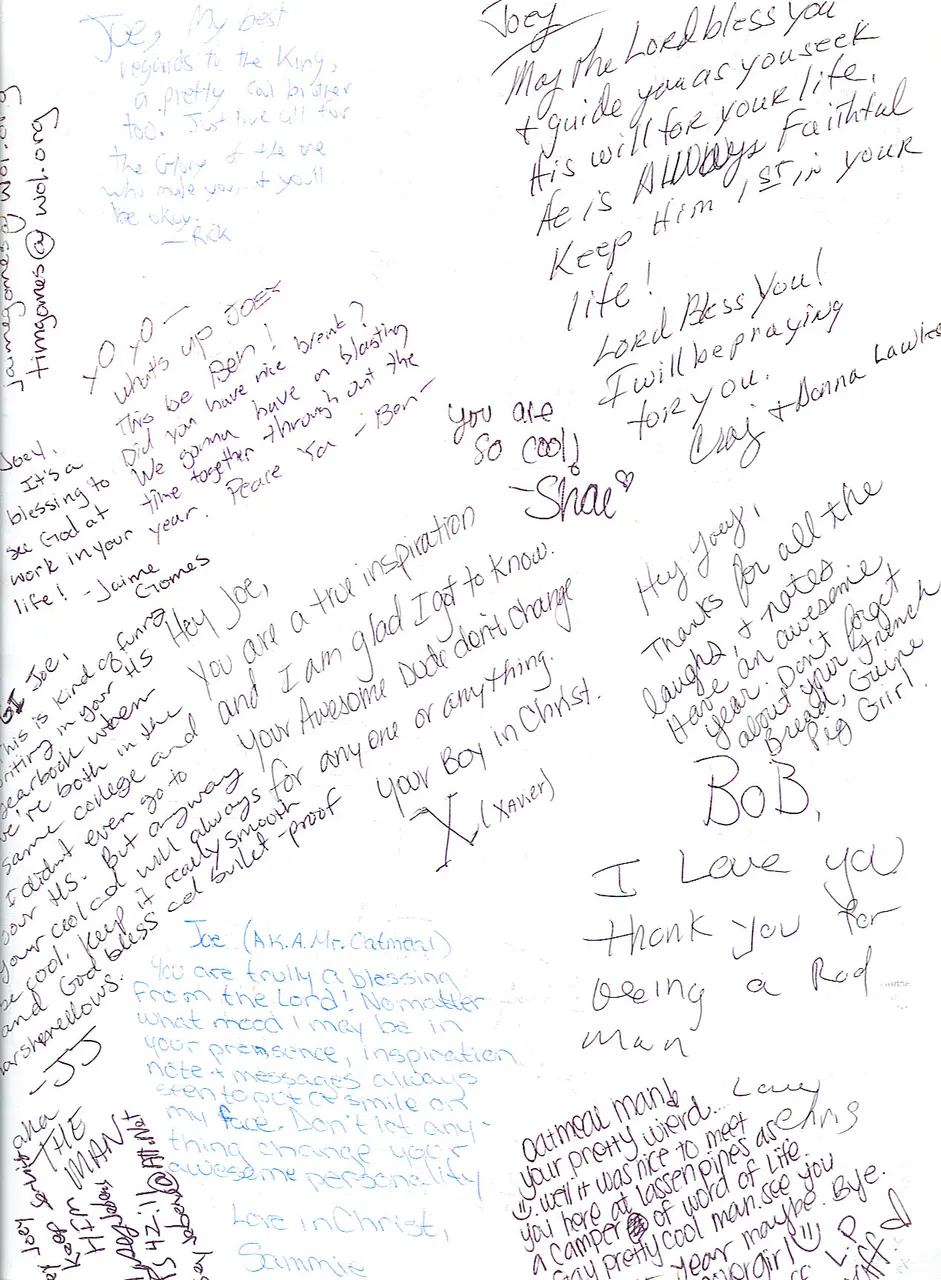 Joe, My best
regards to the King,
a pretty cool brother
too. Just live all for
the Glory of the one
who made you, & you'll
be okay.
—Rick
Joey
May the Lord bless you
+ guide you as you seek
His will for your life.
He is Always Faithful
Keep Him 1ST in your
life!
Lord Bless You!
I will be praying
for you.
Craig + Donna Lawless
jaimegomes@wol.org
timgomes@wol.org
YO YO —
what's up JOEY
This be Ben!
Did you have nice break?
We gonna have a blasting
time together through out the
year. Peace Ya -Ben-
You are
so cool,
-Shae
Joey,
It's a
blessing to
see God at
work in your
life! -Jaime
Gomes
Hey Joe,
You are a true inspiration
and I am glad I got to know.
Your Awesome Dude don't change
for any one or anything.
Your Boy in Christ.
X (XAVIER)
Hey Joey,
Thanks for all the
laughs, & notes
Have an awesome
year. Don't forget
about your French
Bread, Guine
Pig Girl.
Joe,
This is kind of funny
writing in your HS
yearbook when
we're both in the
same college and
I didn't even go to
your HS. But anyway
your cool and will always
be cool, keep it really smooth
and God bless and bullet-proof
marshmellows.
-JJ
BOB,
I Love you
thank you for
being a Rad
man
Love
Chris
Joe (A.K.A. Mr. Oatmeal)
You are trully a blessing
From the Lord! No matter
what mood I may be in
your premsence, inspiration
note & messages always
seen to put a smile on
my face. Don't let any-
thing change your
awesome personality
Love in Christ,
Sammie
oatmeal man!
your pretty wierd...
well it was nice to meet
you here at lassen pines as
a camper of word of life.
stay pretty cool man. see you
year maybe. Bye.
L.P.
Staff
aka
THE
MAN
HIM
keep